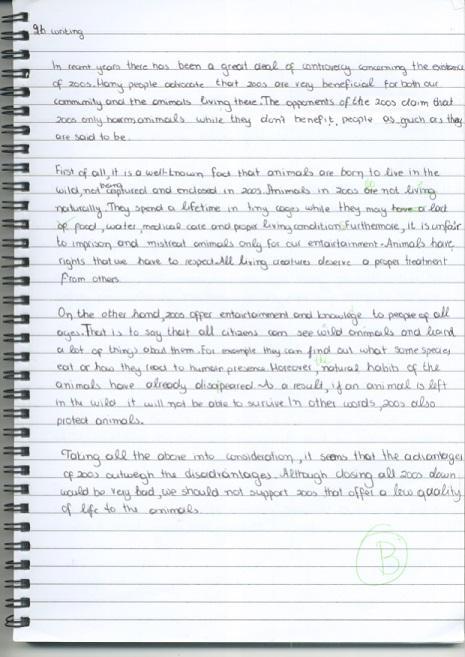 9b writing
In recent years there has been a great deal of controversy concerning the existence
of zoos. Many people advocate that zoos are very beneficial for both our
community and the animals living there. The opponents of the zoos claim that
zoos only harm animals while they don't benefit people as much as they
are said to be.
First of all, it is a well-known fact that animals are born to live in the
wild, not being captured and enclosed in zoos. Animals in zoos are not living
naturally. They spend a lifetime in tiny cages while they may have a lack
of food, water, medical care and proper living condition. Furthermore, it is unfair
to imprison and mistreat animals only for our entertainment. Animals have
rights that we have to respect. All living creatures deserve a proper treatment
from others.
On the other hand, zoos offer entertainment and knowledge to people of all
ages. That is to say that all citizens can see wild animals and learn
a lot of things about them. For example they can find out what some species
eat or how they react to human presence. Moreover, the natural habits of the
animals have already disappeared. As a result, if an animal is left
in the wild it will not be able to survive. In other words, zoos also
protect animals.
Taking all the above into consideration, it seems that the advantages
of zoos outweigh the disadvantages. Although closing all zoos down
would be very bad, we should not support zoos that offer a low quality
of life to the animals.
B